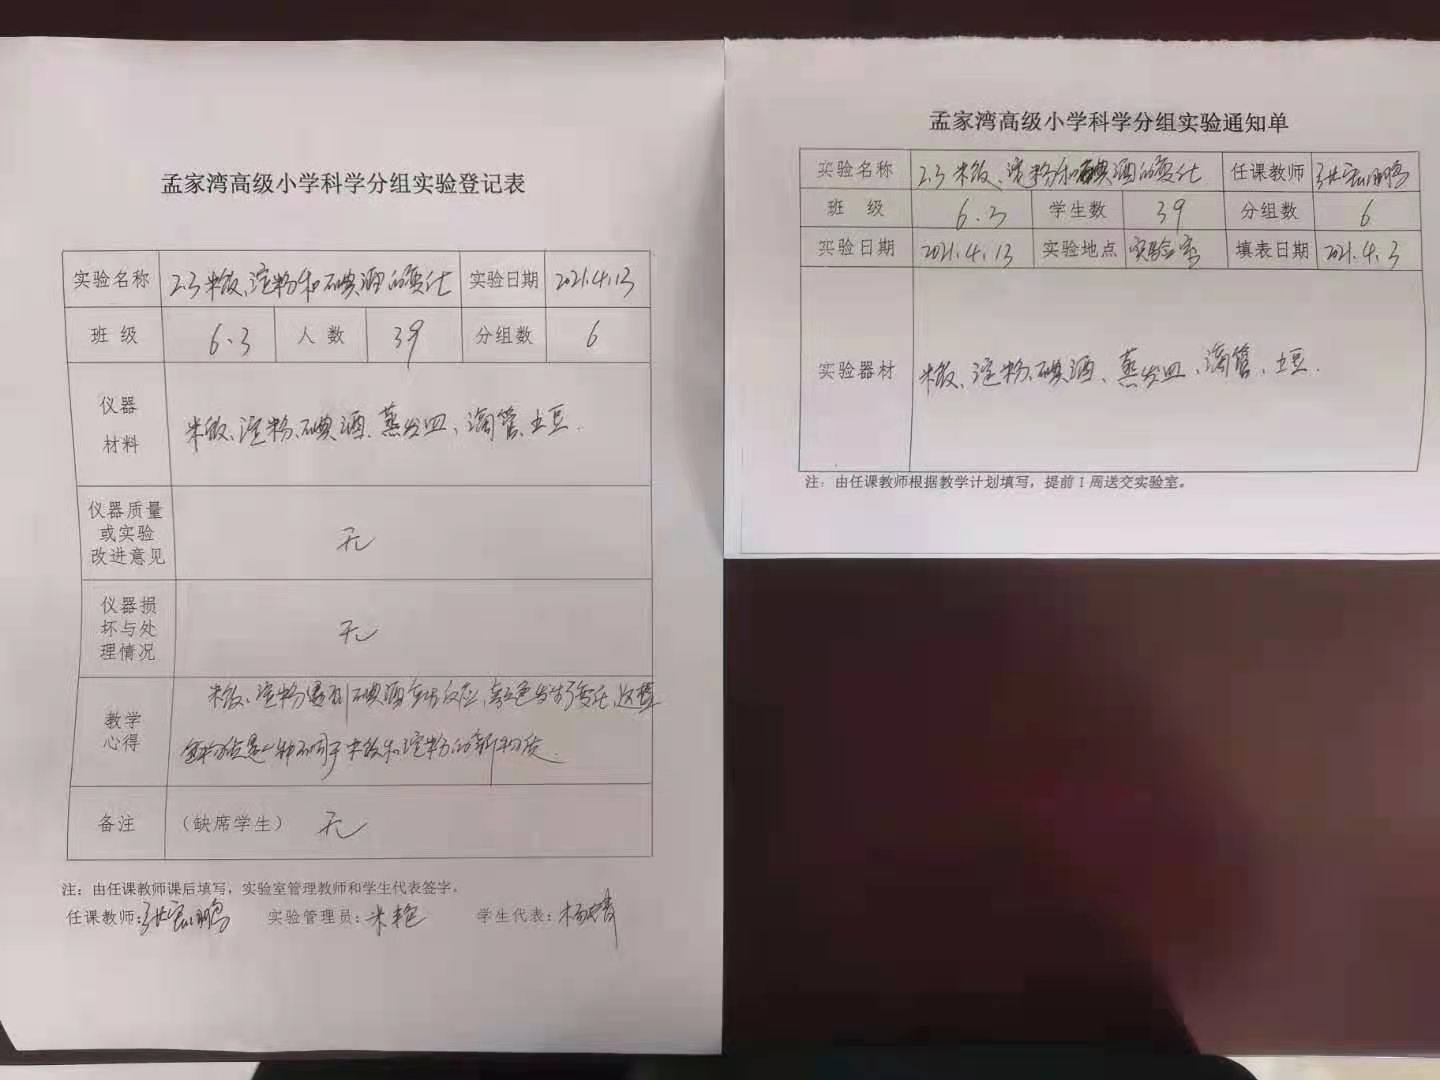 孟家湾高级小学科学分组实验登记表
实验名称 2.3 米饭、淀粉和碘酒的变化 实验日期 2021.4.13
班 级 6.3 人 数 39 分组数 6
仪器
材料
米饭、淀粉、碘酒、蒸发皿、滴管、土豆.
仪器质量
或实验
改进意见
无
仪器损
坏与处
理情况
无
教学
心得
米饭、淀粉遇到碘酒产生反应,颜色发生了变化,这
物质是一种不同于米饭和淀粉的新物质.
备注 (缺席学生) 无
注:由任课教师课后填写,实验室管理教师和学生代表签字。
任课教师:张宏鹏 实验管理员:米艳 学生代表:杨
孟家湾高级小学科学分组实验通知单
实验名称 2.3 米饭、淀粉和碘酒的变化 任课教师 张宏鹏
班 级 6.3 学生数 39 分组数 6
实验日期 2021.4.13 实验地点 实验室 填表日期 2021.4.3
实验器材 米饭、淀粉、碘酒、蒸发皿、滴管、土豆.
注:由任课教师根据教学计划填写,提前1周送交实验室。